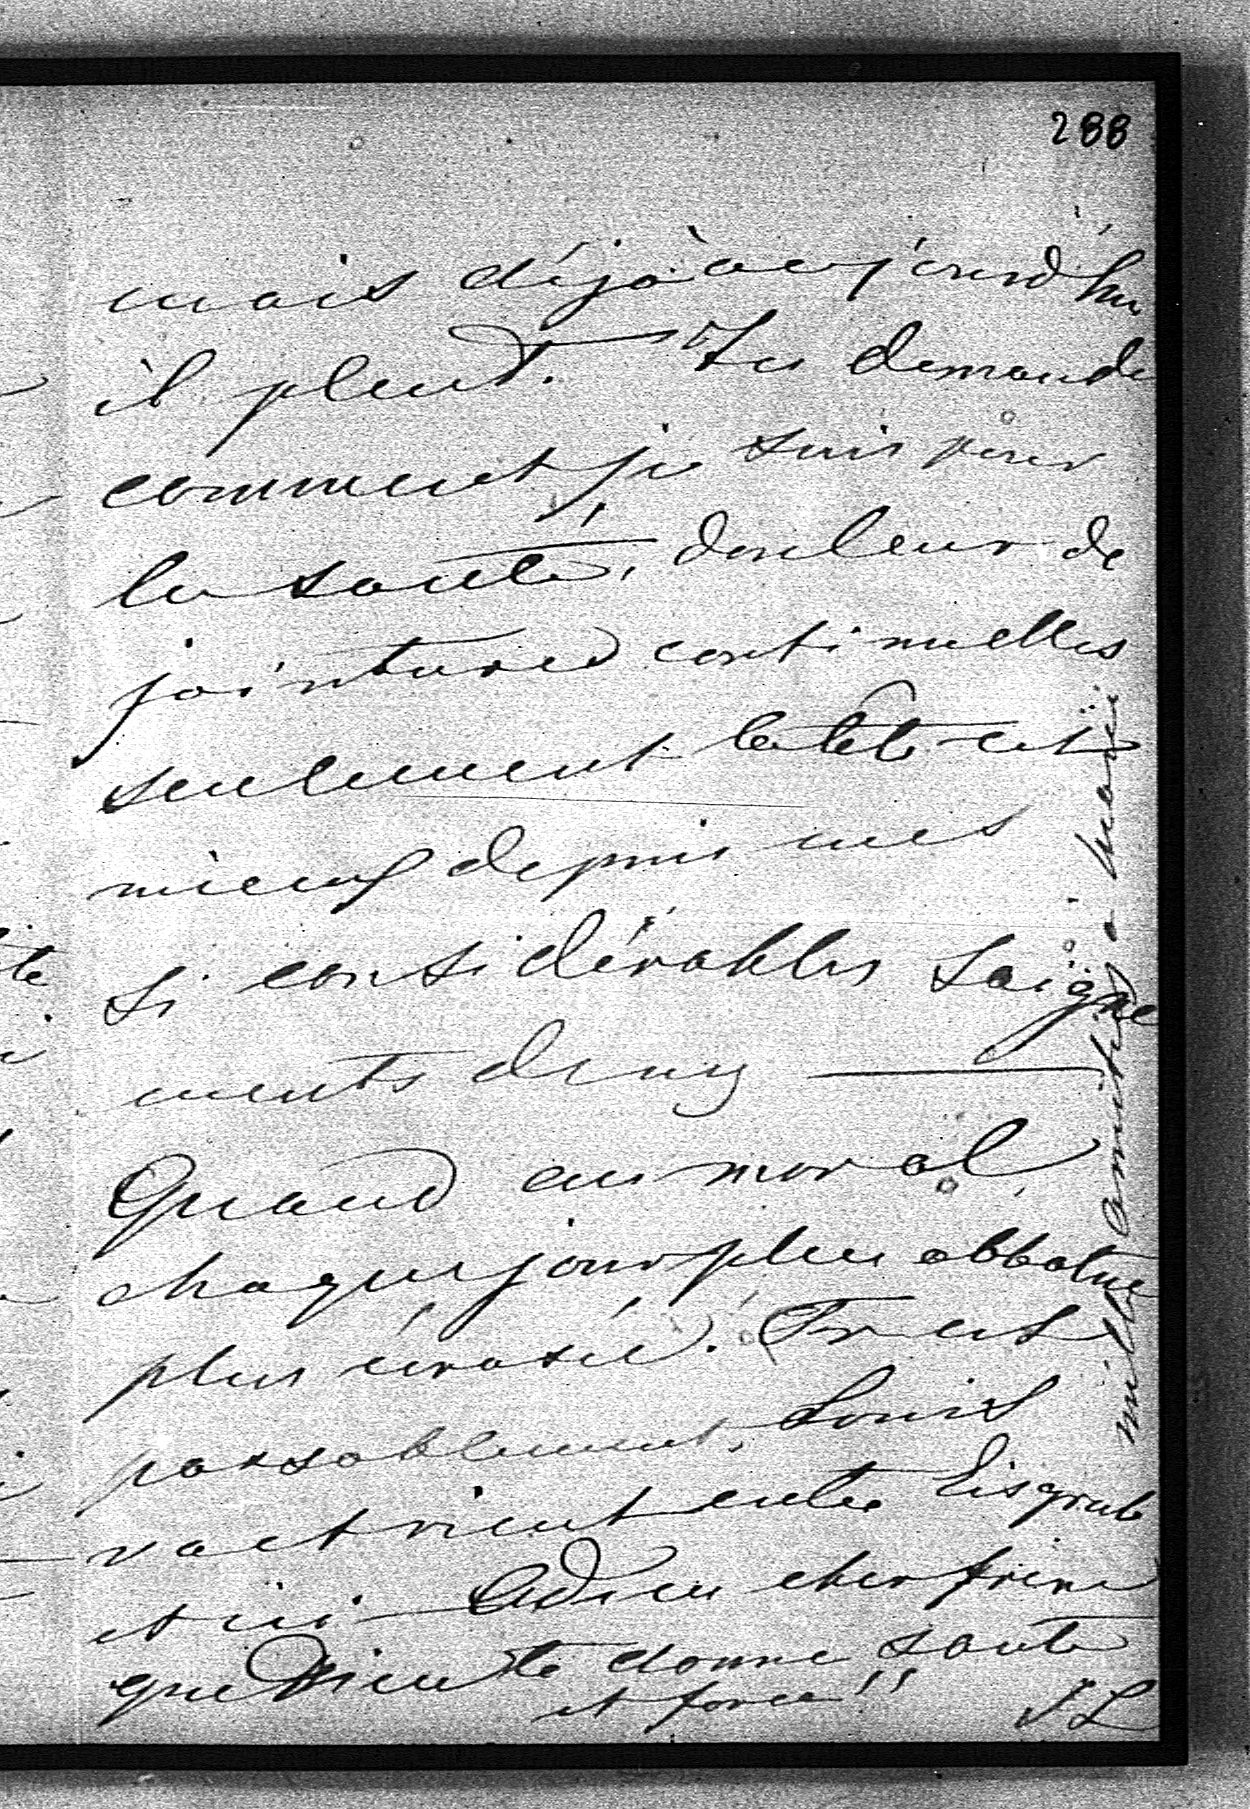 288
mais déjà aujourd'hui
il pleut. Tu demande
comment je suis pour
la santé, douleur de
jointures continuelles
seulement la tête est
mieux depuis mes
si considérables saigne
ments de nez —
Quand au moral,
chaque jour plus abbatue
plus écrasée. Fr est
passablement, Louis
va et vient entre Eisgrub
et ici — Adieu cher frère
que Dieu te donne santé
et force!! FL
mille amitiés à Marie